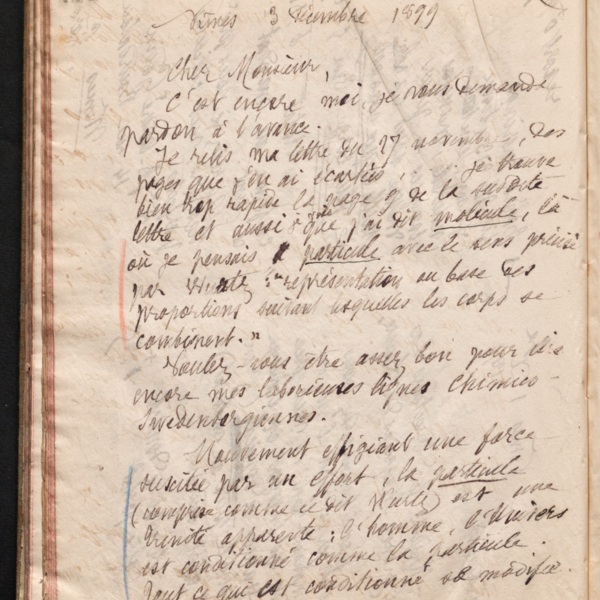 Nîmes 3 Décembre 1899
Cher Monsieur,
C'est encore moi, je vous demande
pardon à l'avance.
Je relis ma lettre du 27 novembre, des
pages que j'en ai écartées, .... je trouve
bien trop rapide la page 9 de la susdite
lettre et aussi que j'ai dit molécule, là
où je pensais particule avec le sens précisé
par Wurtz, "représentation ou base des
proportions suivant lesquelles les corps se
combinent."
Voulez-vous être assez bon pour lire
encore mes laborieuses lignes Chimico-
Swedenborgiennes.
Mouvement effigiant une force
suscitée par un effort, la particule
(comprise comme le dit Wurtz) est une
trinité apparente; l'homme, l'Univers
est conditionné comme la particule.
Tout ce qui est conditionné se modifie.